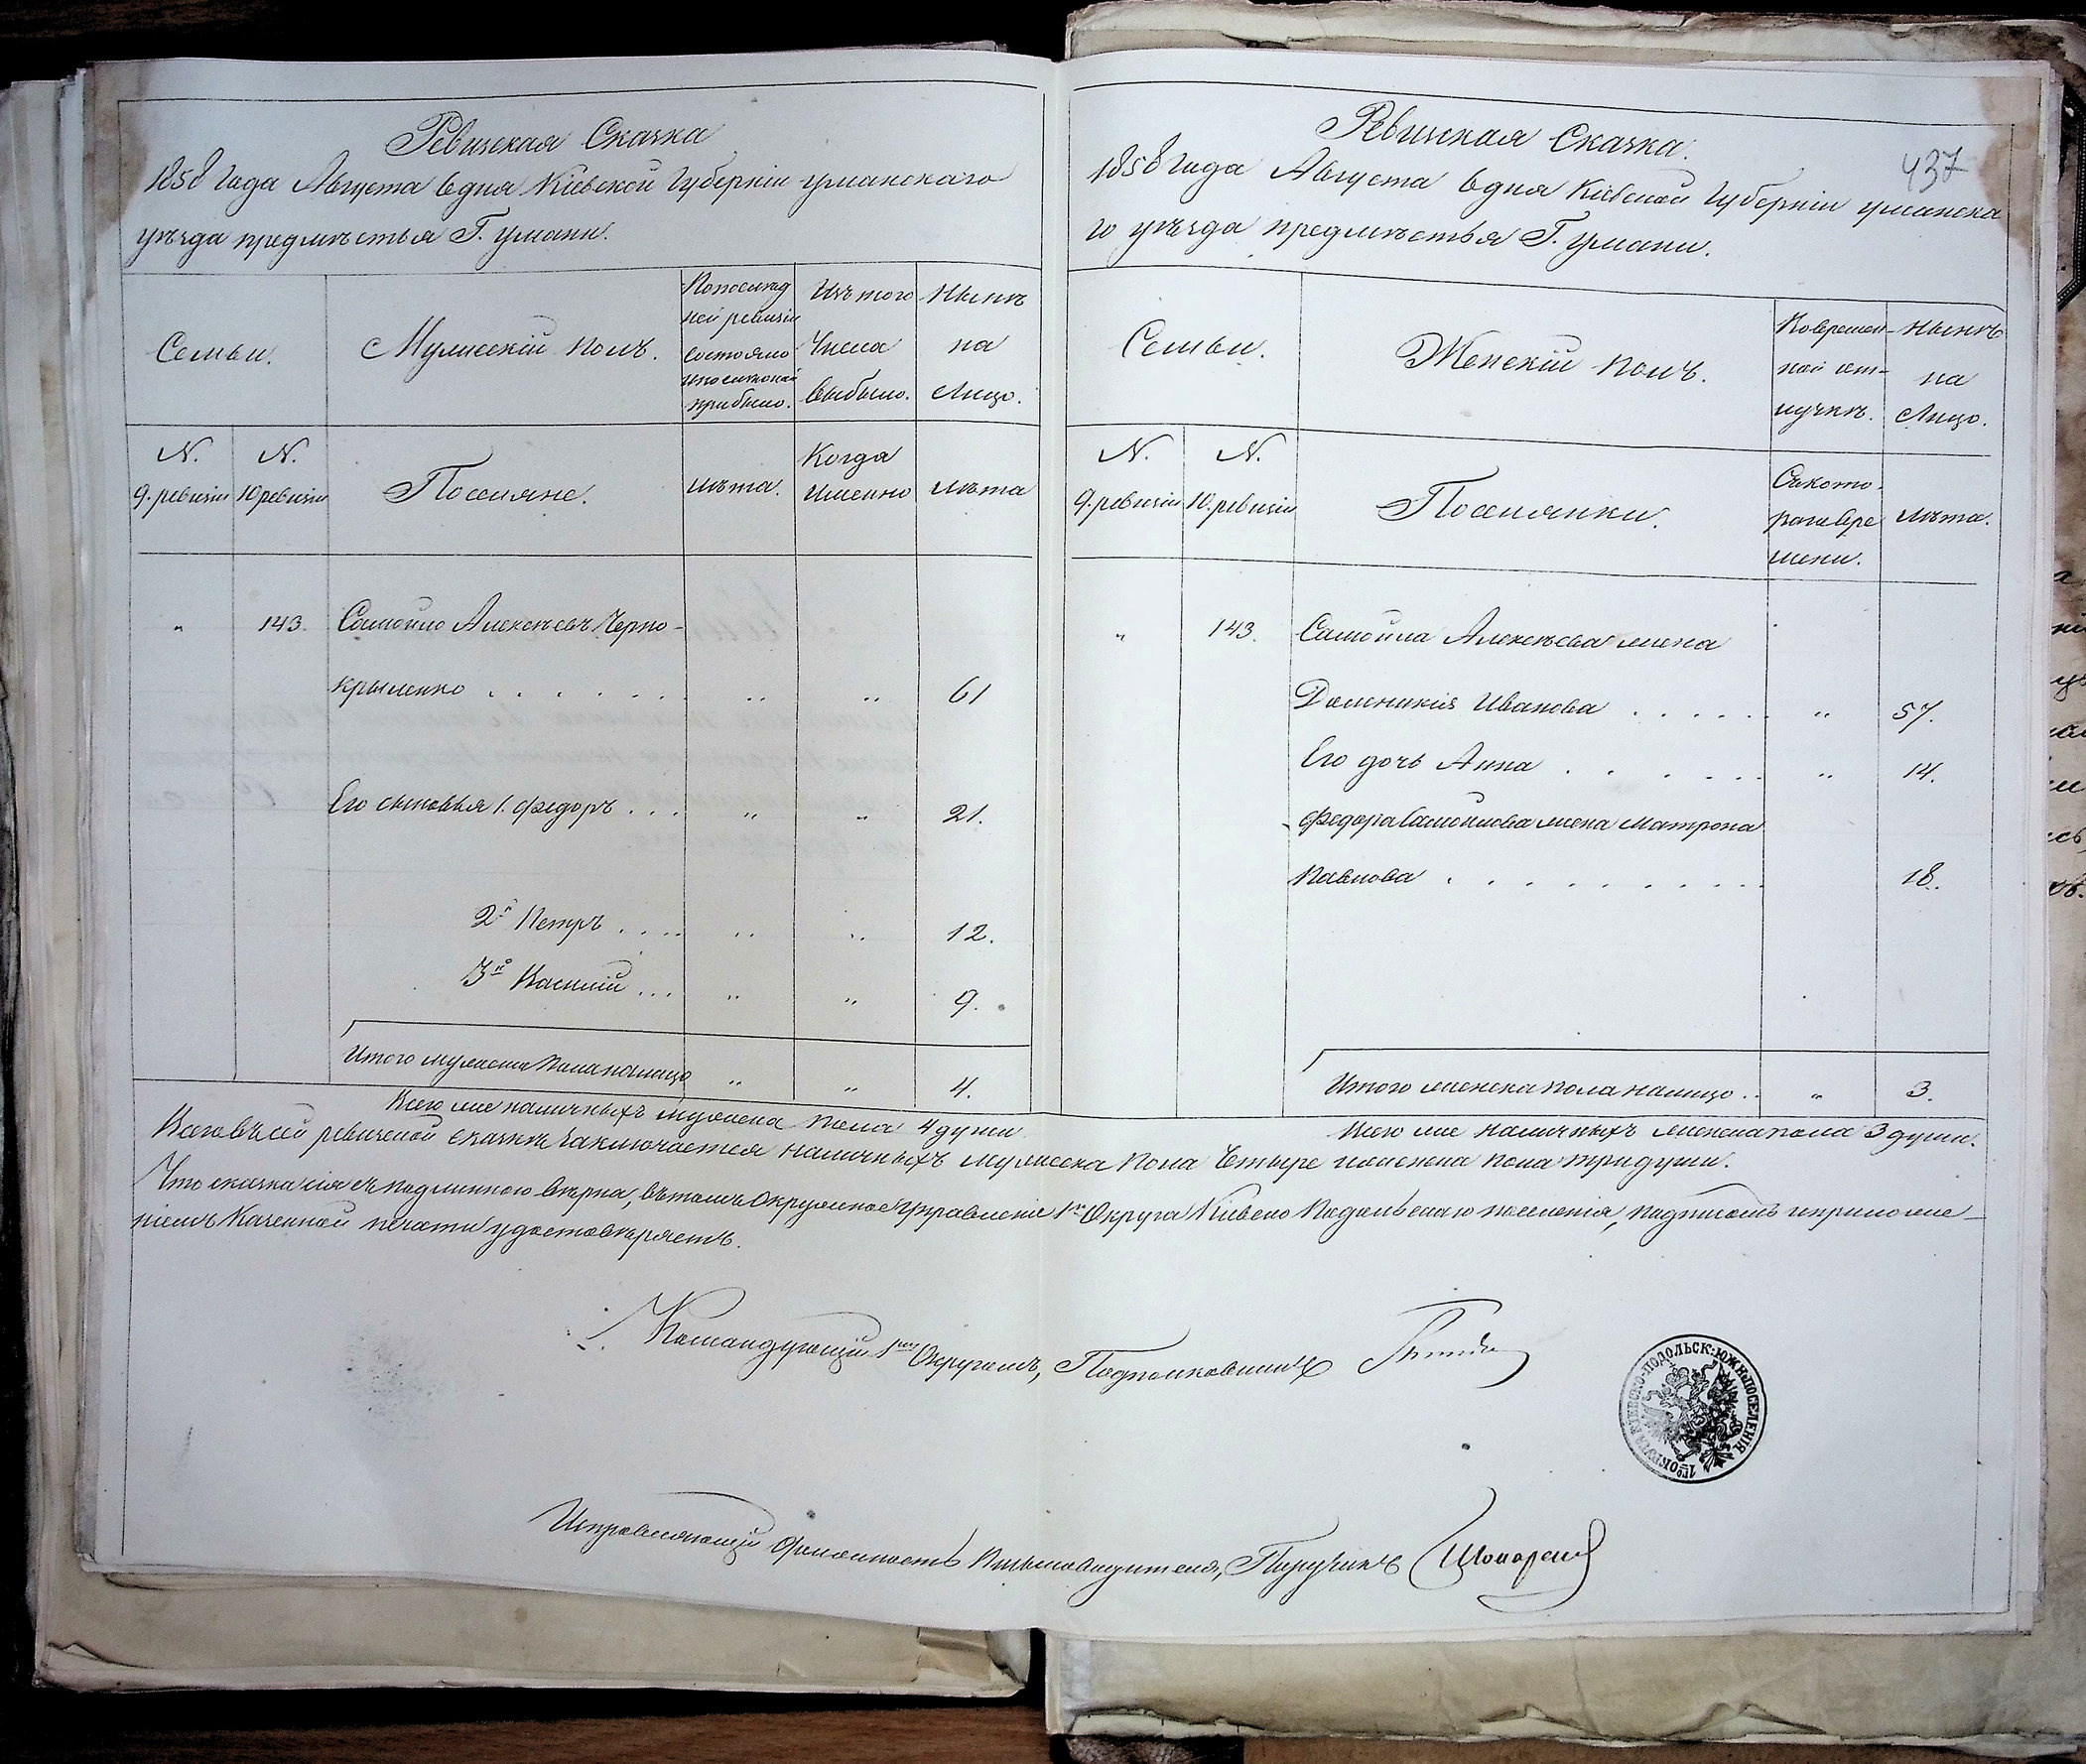 Ревизская Сказка
1858 Года Августа 6 дня Кіевской Губерніи уманскаго
уѣзда предмѣстья Г. Умани.
Семьи.
Мужескій полъ.
По послѣд
ней ревизіи
состояло
и послѣ оной
прибыло.
Изъ того
Числа
выбыло.
Нынѣ
на
Лицо.
N. 9. ревизіи
N. 10 ревизіи
Поселяне.
лѣта.
Когда
Именно
лѣта
" 143. Самойло Алексѣевъ Черно-
крыленко . . . . . . . " " 61
Его сыновья 1. Федоръ . . . " " 21.
2й Петръ . . . . " " 12.
3й Василій . . . " " 9.
Итого мужеска пола налицо " " 4.
Всего же наличныхъ мужеска пола 4 души
Ревизская Сказка.
437
1858 Года Августа 6 дня Кіевской Губерніи уманска
го уѣзда предмѣстья Г. Умани.
Семьи.
Женскій полъ.
Во времен-
ной от-
лучкѣ.
Нынѣ
на
Лицо.
N. 9. ревизіи
N. 10. ревизіи
Поселянки.
Съ кото-
раго вре
мени.
лѣта.
" 143. Самойла Алексѣева жена
Доменикія Иванова . . . . . " 57.
Его дочь Анна . . . . . . " 14.
Федора Самойлова жена Матрона
Павлова . . . . . . . . . . 18.
Итого женска пола налицо . . " 3.
Всего же наличныхъ женска пола 3 души.
Всего въ сей ревизской сказкѣ заключается наличныхъ мужеска пола четыре и женска пола три души.
Что сказка сія съ подлинною вѣрна, въ томъ Окружное Управленіе 1го Округа Кіевско Подольскаго поселенія, подписомъ и приложе-
ніемъ Казенной печати удостовѣряетъ.
Командующій 1мъ Округомъ, Подполковникъ
1го ОКРУГА КІЕВСКО-ПОДОЛЬСК: ЮЖН: ПОСЕЛЕНІЯ
Исправляющій должность Письмоводителя, Поручикъ